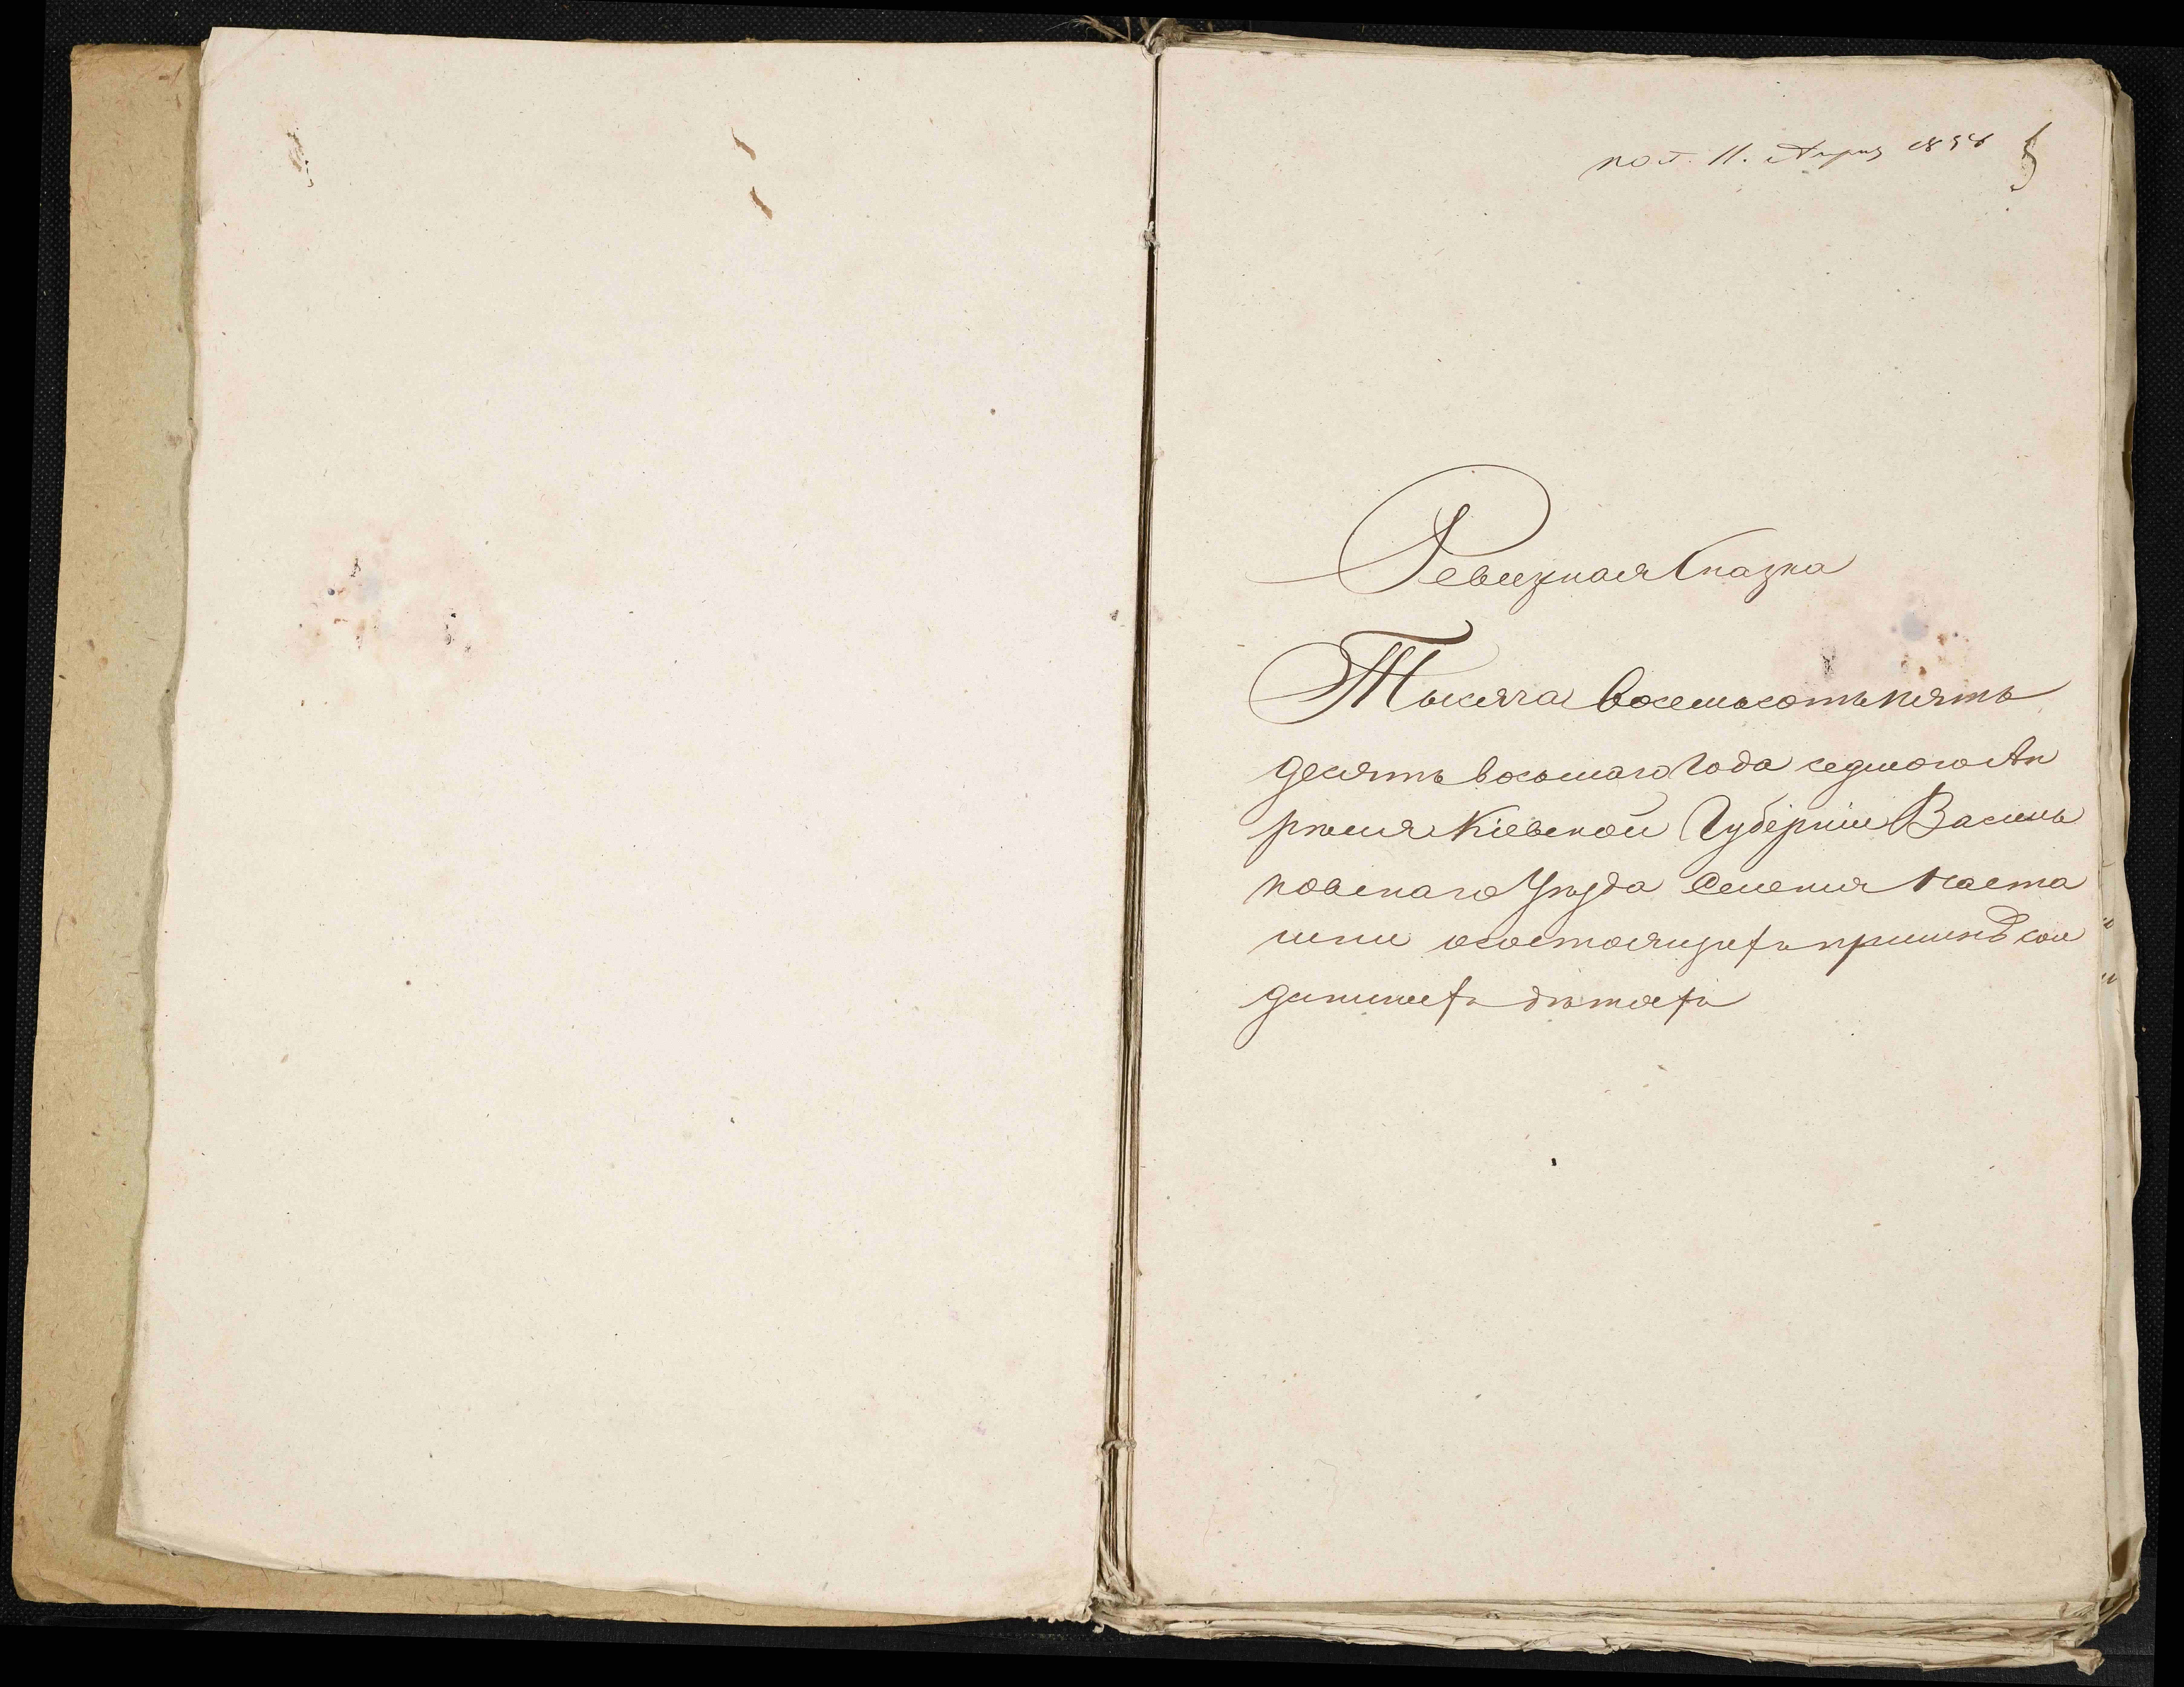 пол. 11. Апреля 1858
Ревизная Сказка
Тысяча восемьсотъ пять
десятъ восьмаго Года седмого Ап
рѣля Кіевской Губерніи Василь
ковскаго Уѣзда Селенія Наста
шки осостоящихъ принихъ сол
дацкихъ дѣтяхъ